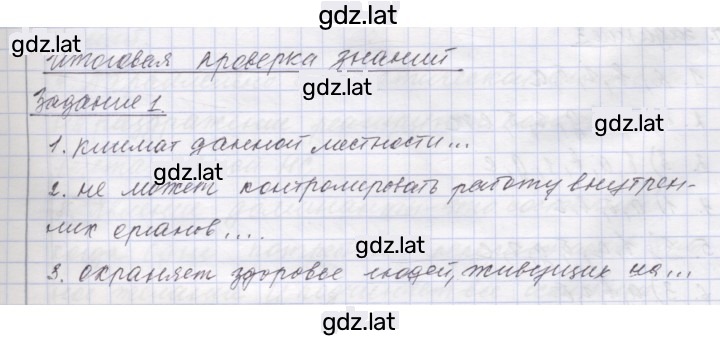 gdz.lat
gdz.lat
итоговая проверка знаний
gdz.lat
Задание 1.
gdz.lat
1. климат данной местности...
gdz.lat
2. не может контролировать работу внутрен-
них органов....
gdz.lat
3. охраняет здоровье людей, живущих на...
gdz.lat